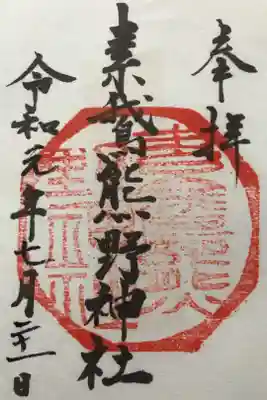 奉拝
素鵞熊野神社
令和元年七月二十一日